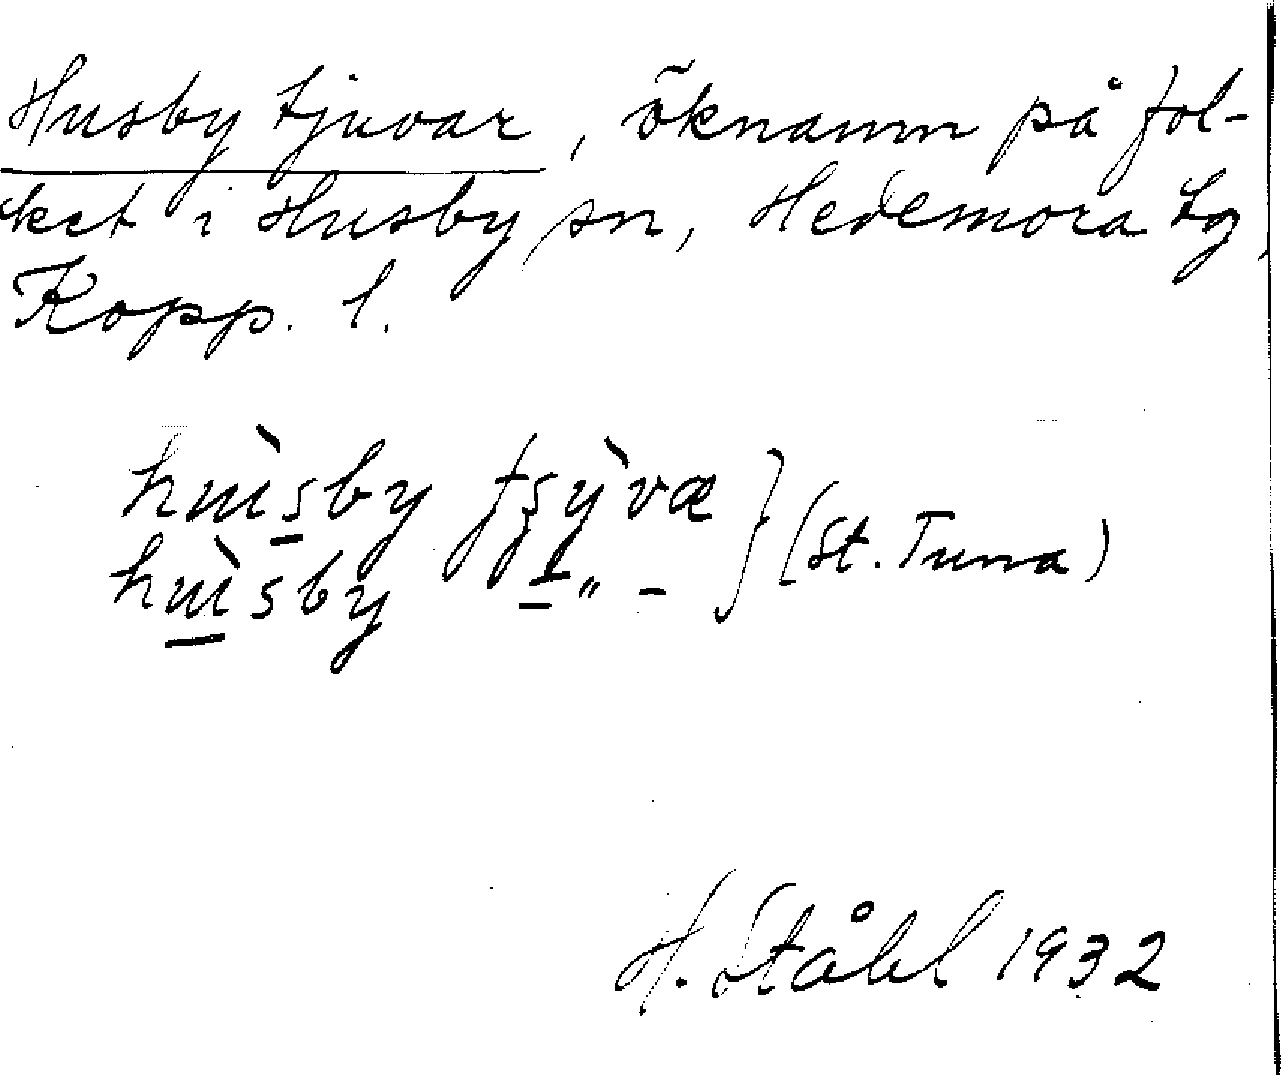 Husby tjuvar, öknamn på fol-
ket i Husby sn, Hedemora tg,
Kopp. l.
husby
husby – „ –
(St. Tuna)
H. Ståhl 1932